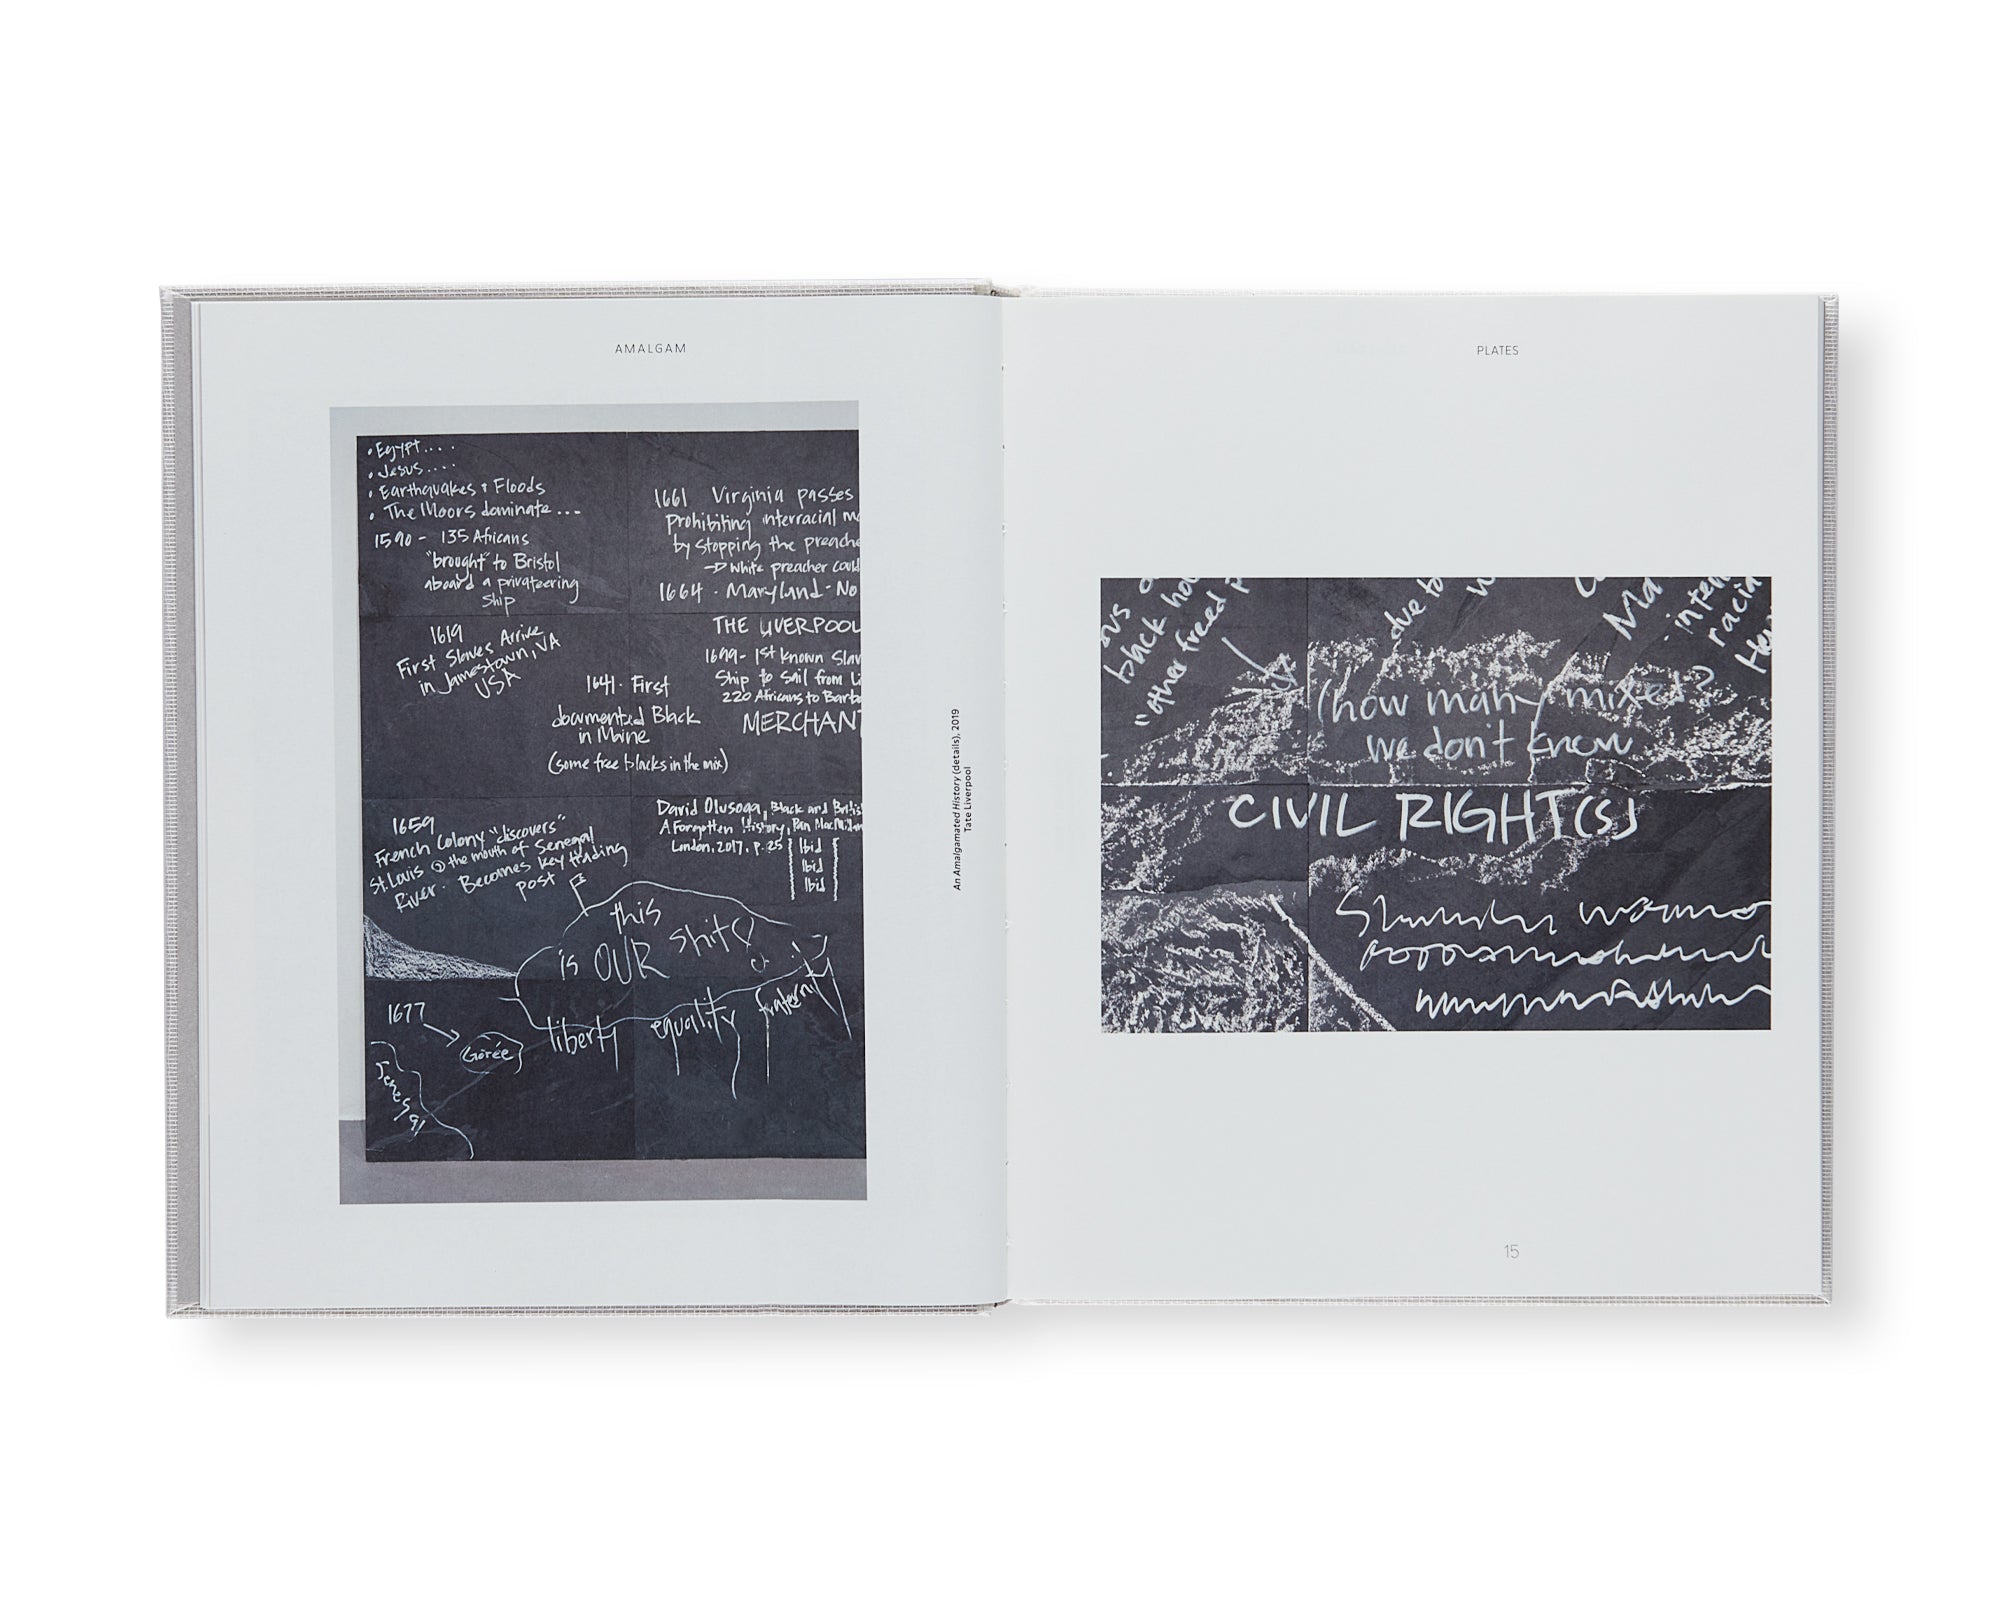 AMALGAM
• Egypt....
• Jesus....
• Earthquakes & Floods
• The Moors dominate ...
1590 - 135 Africans
"brought" to Bristol
aboard a privateering
Ship
1619
First Slaves Arrive
in Jamestown, VA
USA
1641. First
documented Black
in Maine
(some free blacks in the mix)
1661 Virginia passes
Prohibiting interracial
by stopping the
→ White preacher
1664 . Maryland - No
THE LIVERPOOL
1699 - 1st known
Ship to Sail from
220 Africans to
MERCHANT
1659
French Colony "discovers"
St. Louis @ the mouth of Senegal
River. Becomes key trading
post
David Olusoga, Black and
A Forgotten History, Pan
London, 2017, p. 25
Ibid
Ibid
Ibid
this
is OUR shit?
liberty equality fraternity
1677
Gorée
Senegal
An Amalgamated History (details), 2019
Tate Liverpool
PLATES
black
"other freed
due to
(how many mixed?
we don't know
CIVIL RIGHT(S)
15